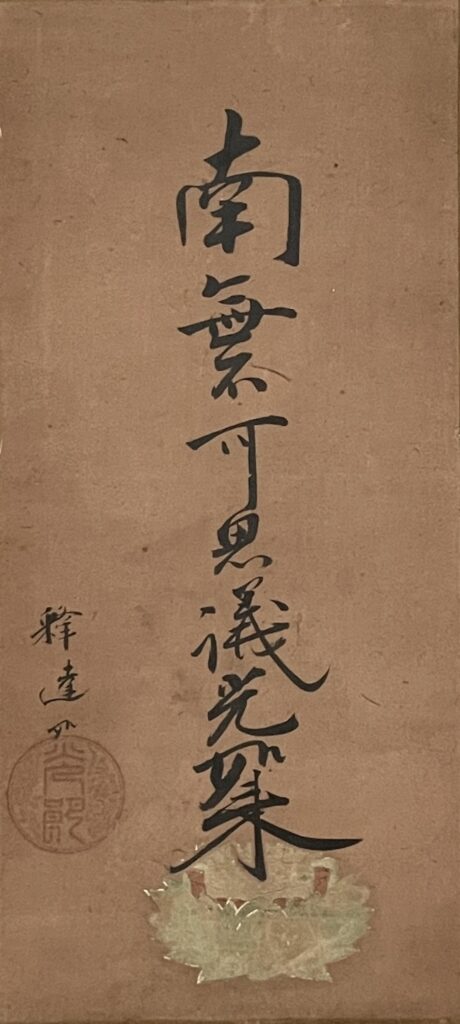 南無不可思議光如来
釋達如
光朗